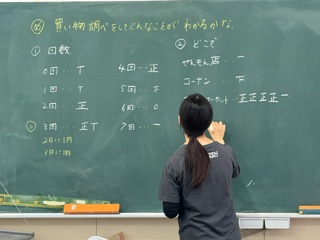 め 買い物調べをしてどんなことがわかるかな。
① 回数
0回…T
1回…T
2回…正
3回…正T
2日に1回
4回…正
5回…下
6回…0
7回…一
② どこで
せんもん店…一
コーナン…下
ケット…正正正正一